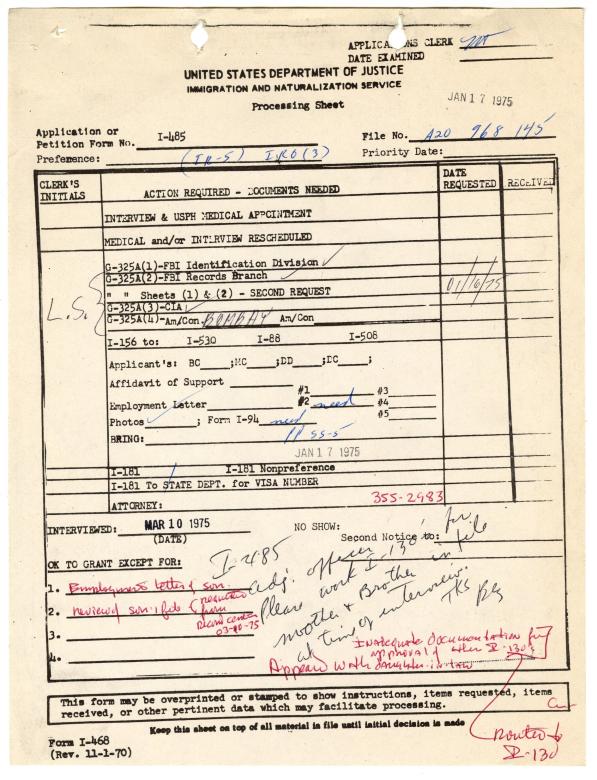 APPLICATIONS CLERK
DATE EXAMINED
UNITED STATES DEPARTMENT OF JUSTICE
IMMIGRATION AND NATURALIZATION SERVICE
Processing Sheet
JAN 17 1975
Application or
Petition Form No. I-485
File No. A20 968 145
Preference: (IR-5) IRO(3)
Priority Date:
CLERK'S INITIALS
ACTION REQUIRED - DOCUMENTS NEEDED
DATE REQUESTED
RECEIVED
INTERVIEW & USPH MEDICAL APPOINTMENT
MEDICAL and/or INTERVIEW RESCHEDULED
G-325A(1)-FBI Identification Division
G-325A(2)-FBI Records Branch
" " Sheets (1) & (2) - SECOND REQUEST
01/10/75
L.S.
G-325A(3)-CIA
G-325A(4)-Am/Con BOMBAY Am/Con
I-156 to: I-530 I-88 I-508
Applicant's: BC ;MC ;DD ;DC ;
Affidavit of Support
#1 #3
Employment Letter #2 need #4
Photos ; Form I-94 need #5
BRING: PP SS-5
JAN 17 1975
I-181 I-181 Nonpreference
I-181 To STATE DEPT. for VISA NUMBER
ATTORNEY: 355-2983
INTERVIEWED: MAR 10 1975
(DATE)
NO SHOW:
Second Notice to:
OK TO GRANT EXCEPT FOR:
I-485
Adj. officer
Please work I-130's for
mother & Brother in file
at time of interview.
TKS
1. Employment letter of son.
2. review of son's file (requested from
Record center
03-10-75
3.
4.
Inadequate documentation for
approval of other I-130s
Appeared with daughter-in-law
This form may be overprinted or stamped to show instructions, items requested, items
received, or other pertinent data which may facilitate processing.
Keep this sheet on top of all material in file until initial decision is made
Routed to
I-130
Form I-468
(Rev. 11-1-70)